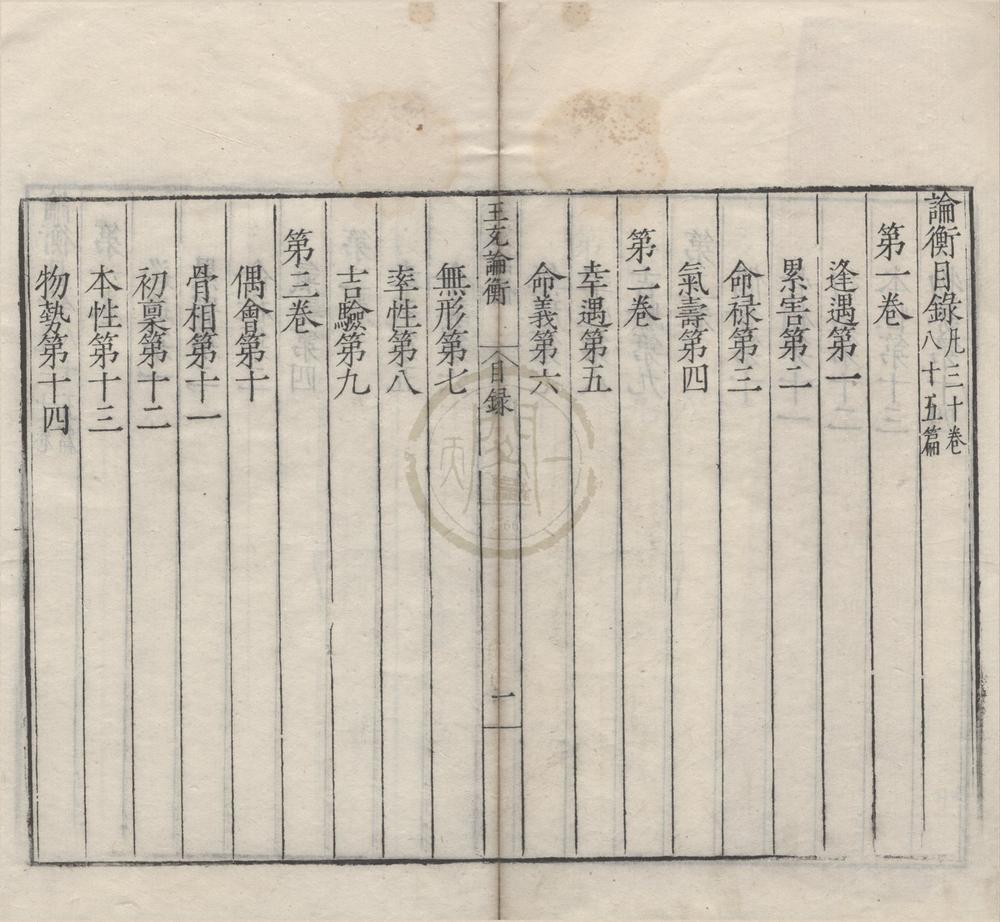 論衡目錄凡三十卷八十五篇
第一卷
逢遇第一
累害第二
命禄第三
氣壽第四
第二卷
幸遇第五
命義第六
王充論衡 目録 一
無形第七
率性第八
吉驗第九
第三卷
偶會第十
骨相第十一
初稟第十二
本性第十三
物勢第十四